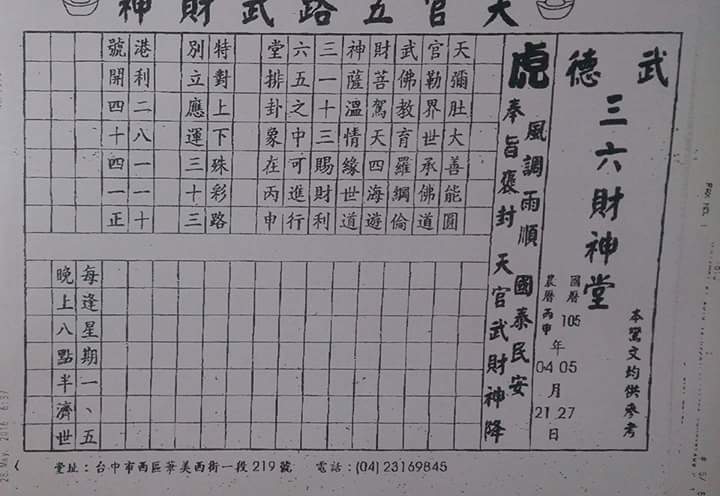 天官五路武財神
武德
三六財神堂
本鸞文均供參考
國曆105年05月27日
農曆丙申年04月21日
虎
風調雨順 國泰民安
奉旨褒封 天官武財神降
天彌肚大善能圓
官勒界世承佛道
武佛教育羅綱倫
財菩駕天四海遊
神薩溫情緣世道
三一十三賜財利
六五之中可進行
堂排卦象在丙申
特對上下珠彩路
別立應運三十三
港利二八一一十
號開四十四一正
每逢星期一、五
晚上八點半濟世
堂址:台中市西區華美西街一段219號 電話:(04)23169845
28 May. 2016 6:37
FAX NO.